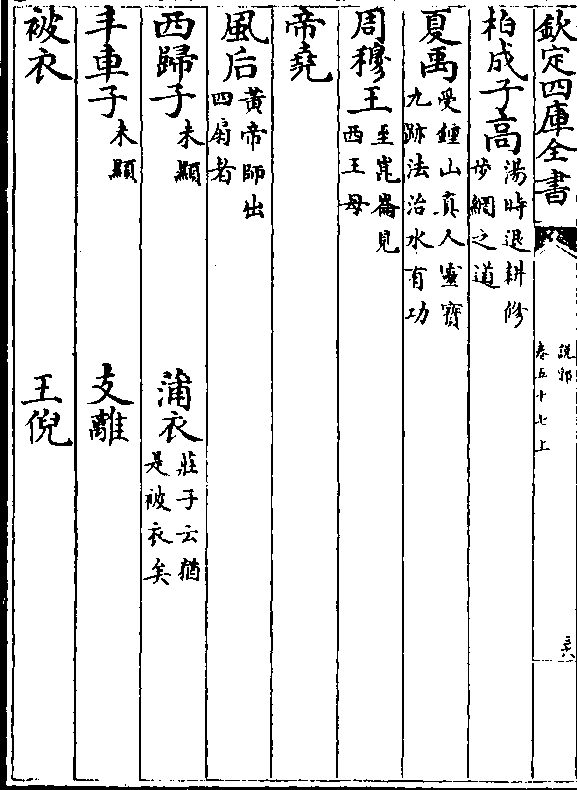 欽定四庫全書
說郛
卷五十七上
三六
柏成子高湯時退耕修步綱之道
夏禹受鍾山真人靈寶九跡法治水有功
周穆王至崑崙見西王母
帝堯
風后黃帝師出四扇者
西歸子未顯 蒲衣莊子云猶是被衣矣
丰車子未顯 支離
被衣 王倪